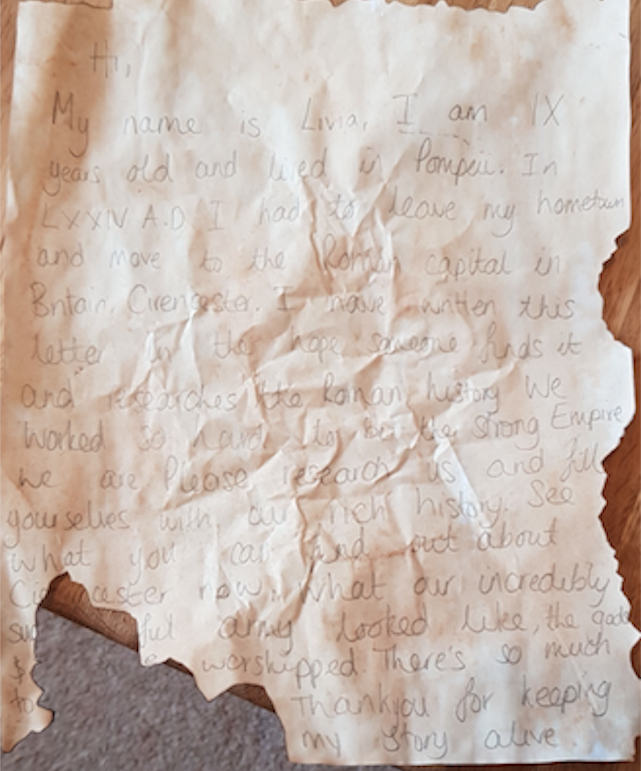 Hi,
My name is Livia, I am IX
years old and lived in Pompeii. In
LXXIV A.D I had to leave my hometown
and move to the Roman capital in
Britain, Cirencester. I have written this
letter in the hope someone finds it
and researches the Roman history We
worked so hard to be the strong Empire
we are. Please research us and fill
yourselves with our rich history. See
what you can find out about
now. What our incredibly
army looked like, the gods
worshipped. There's so much
Thankyou for keeping
my story alive.